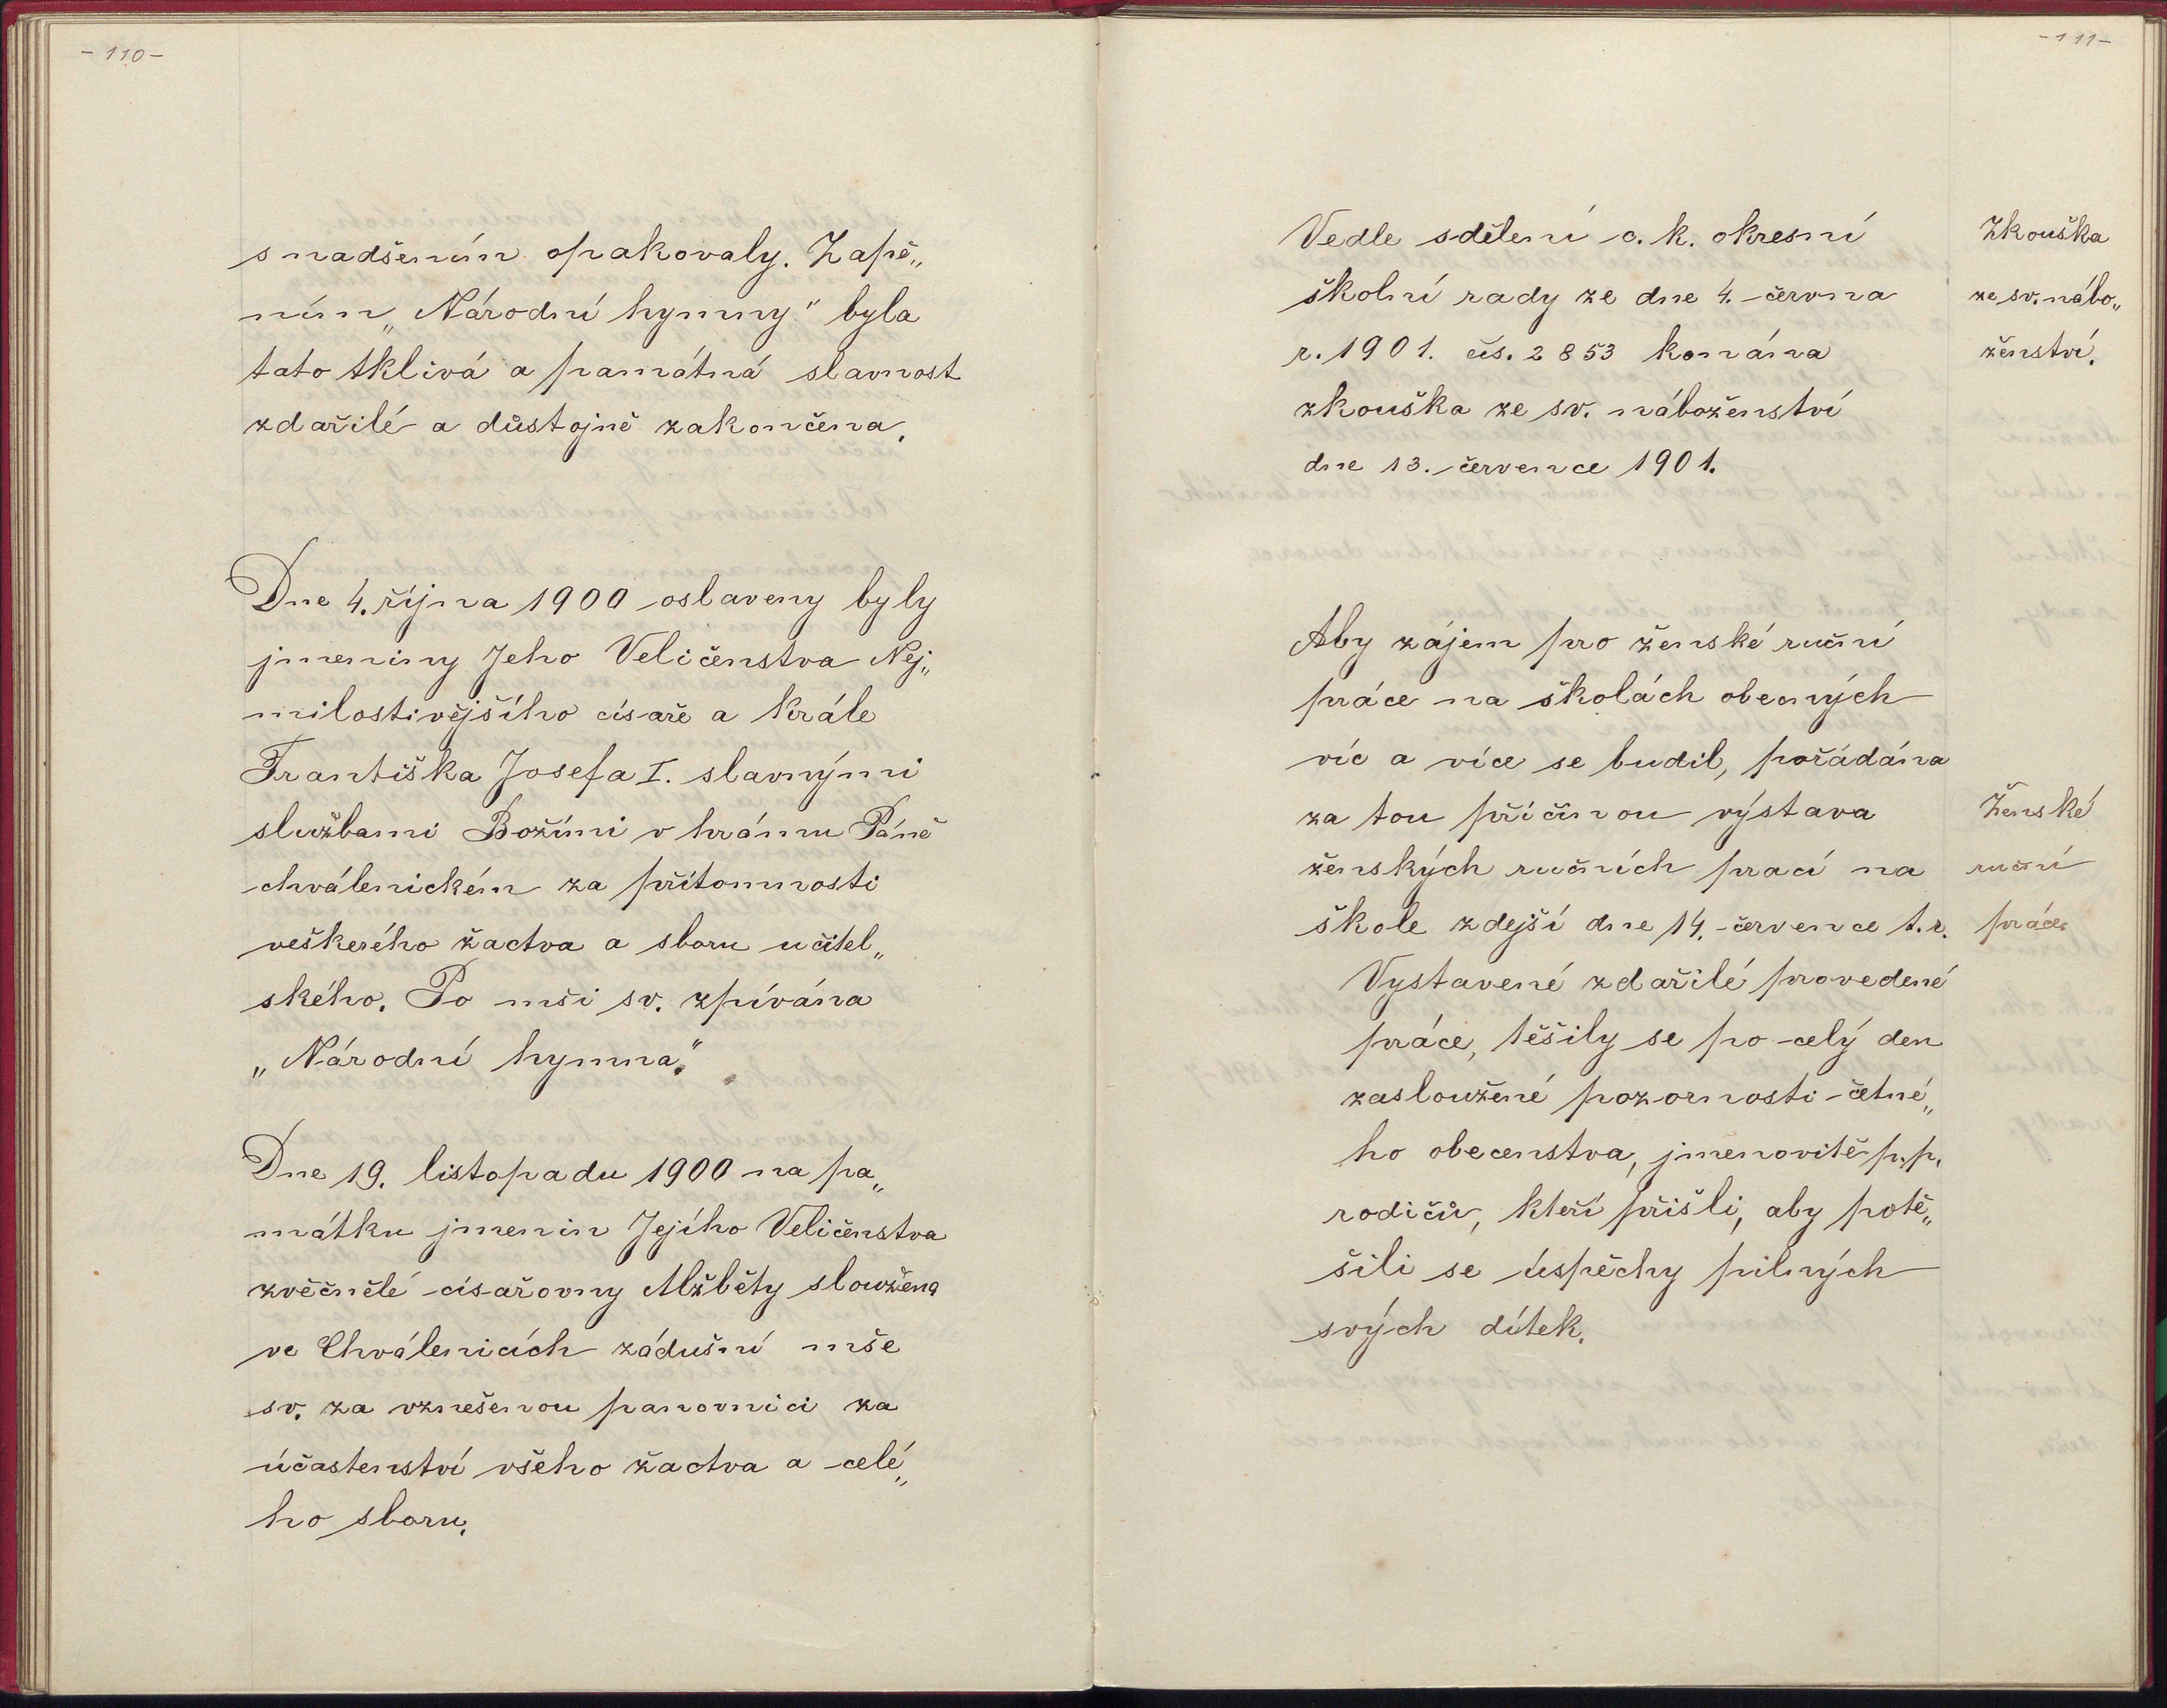 - 110 -
s nadšením opakovaly. Zapě„
ním „Národní hymny" byla
tato tklivá a památná slavnost
zdařilé a důstojně zakončena.
Dne 4. října 1900 oslaveny byly
jmeniny Jeho Veličenstva Nej„
milostivějšího císaře a krále
Františka Josefa I. slavnými
službami Božími v hrámu Páně
chválenickém za přítomnosti
veškerého žactva a sboru učitel„
ského. Po mši sv. zpívána
„Národní hymna."
Dne 19. listopadu 1900 na pa„
mátku jmenin Jejího Veličenstva
zvěčnělé císařovny Alžběty sloužena
ve Chválenicích zádušní mše
sv. za vznešenou panovnici za
účastenství všeho žactva a celé„
ho sboru.
- 111 -
Vedle sdělení c. k. okresní
školní rady ze dne 4. června
r. 1901. čís. 2853 konána
zkouška ze sv. náboženství
dne 13. července 1901.
Zkouška
ze sv. nábo„
ženství.
Aby zájem pro ženské ruční
práce na školách obecných
víc a více se budil, pořádána
za tou příčinou výstava
ženských ručních prací na
škole zdejší dne 14. července t. r.
Vystavené zdařilé provedené
práce, těšily se po celý den
zasloužené pozornosti četné„
ho obecenstva, jmenovitě p. p.
rodičů, kteří přišli, aby potě„
šili se úspěchy pilných
svých dítek.
Ženské
ruční
práce.